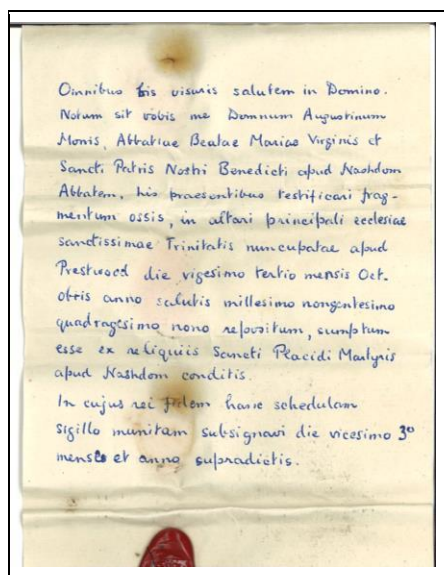 Omnibus his visuris salutem in Domino.
Notum sit vobis me Domnum Augustinum
Monis, Abbatiae Beatae Mariae Virginis et
Sancti Patris Nostri Benedicti apud Nashdom
Abbatem, his praesentibus testificari frag-
mentum ossis, in altari principali ecclesiae
sanctissimae Trinitatis nuncupatae apud
Prestwood die vigesimo tertio mensis Oct.
obris anno salutis millesimo nongentesimo
quadragesimo nono repositum, sumptum
esse ex reliquiis Sancti Placidi Martyris
apud Nashdom conditis.
In cujus rei fidem hanc schedulam
sigillo munitam subsignavi die vicesimo 3º
mensis et anno supradictis.